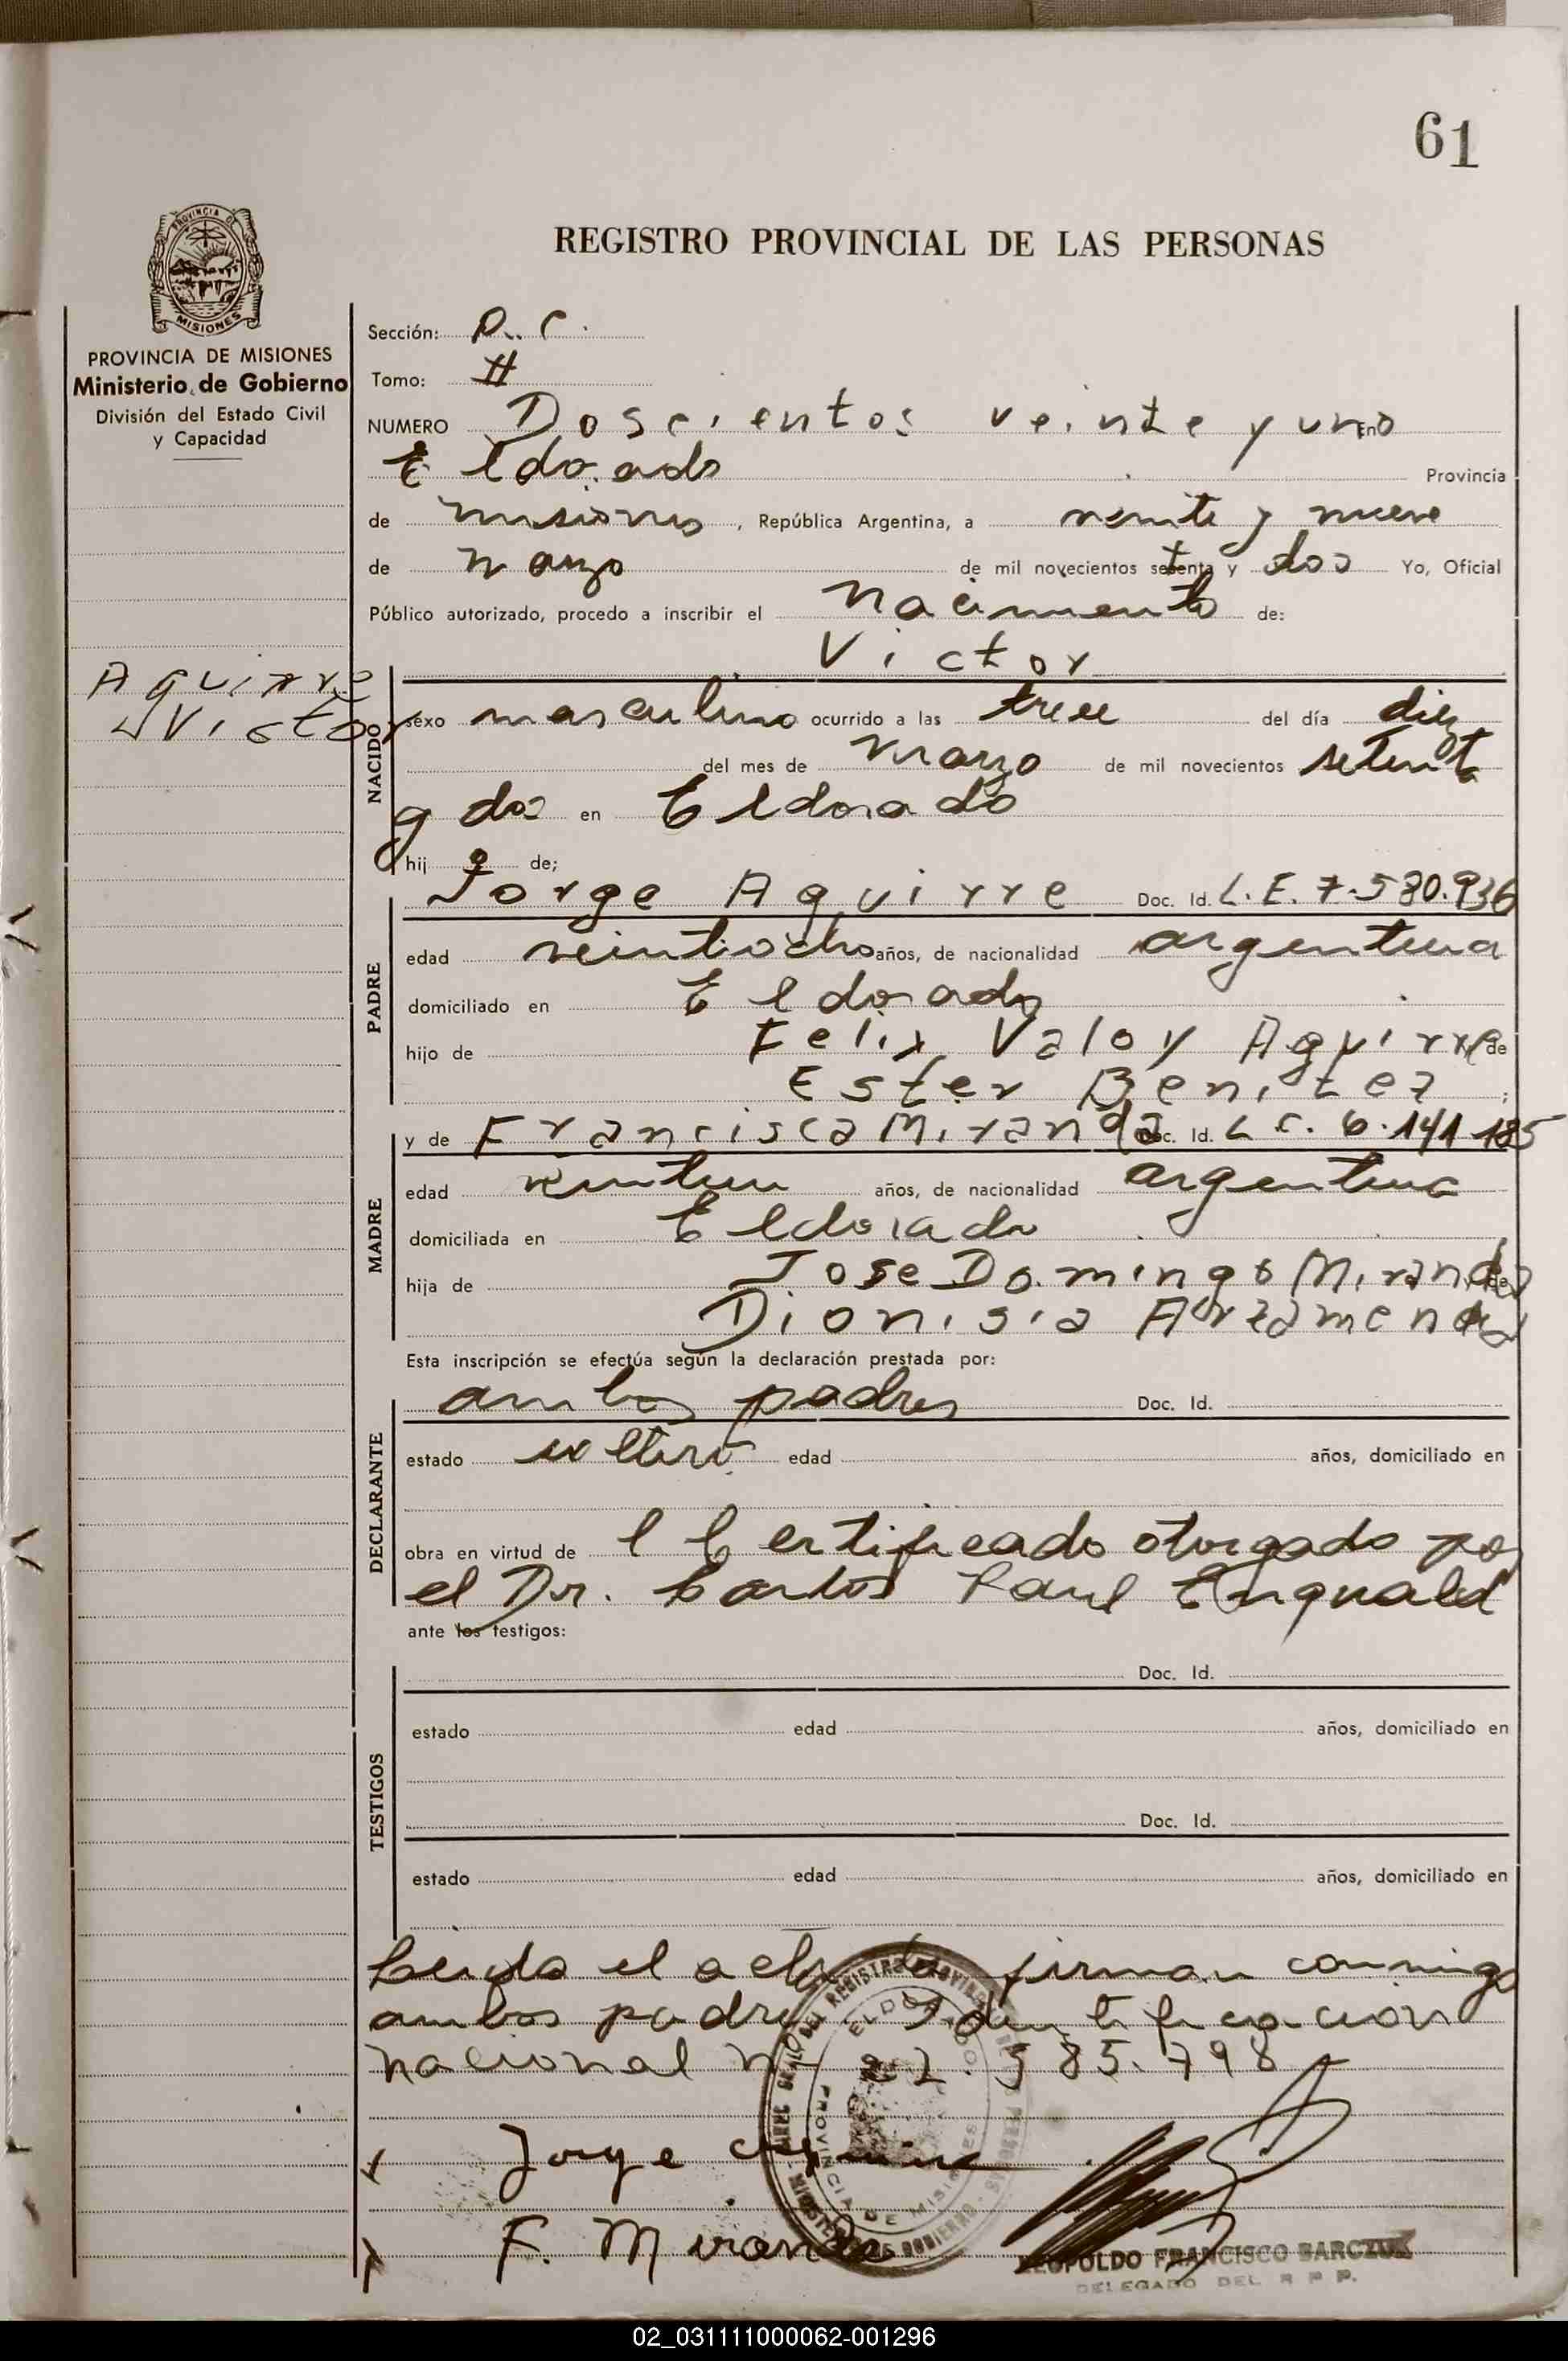 61
REGISTRO PROVINCIAL DE LAS PERSONAS
PROVINCIA DE MISIONES
Ministerio de Gobierno
División del Estado Civil
y Capacidad
Sección:
Tomo: II
NUMERO Doscientos veinte y uno En
Eldorado Provincia
de misiones, República Argentina, a veinte y nueve
de marzo de mil novecientos setenta y dos Yo, Oficial
Público autorizado, procedo a inscribir el nacimiento de:
Victor
Aguirre
Victor
NACIDO
sexo masculino ocurrido a las trece del día diez
del mes de marzo de mil novecientos setenta
y dos en Eldorado
hij o de;
PADRE
Jorge Aguirre Doc. Id. L.E. 7.580.936
edad veintiocho años, de nacionalidad argentina
domiciliado en Eldorado
hijo de Felix Valoy Aguirre y de
Ester Benitez ;
MADRE
y de Francisca Miranda Doc. Id. L C. 6.141.185
edad veintiun años, de nacionalidad argentina
domiciliada en Eldorado
hija de Jose Domingo Miranda y de
Dionisia
Esta inscripción se efectúa según la declaración prestada por:
DECLARANTE
ambos padres Doc. Id.
estado soltero edad años, domiciliado en
obra en virtud de l Certificado otorgado por
el Dr. Carlos Raul
ante los testigos:
TESTIGOS
Doc. Id.
estado edad años, domiciliado en
Doc. Id.
estado edad años, domiciliado en
Leida el acta la firman conmigo
ambos padres Identificacion
nacional Nº 22.585.798
Jorge Aguirre
F. Miranda
LEOPOLDO FRANCISCO BARCZUK
DELEGADO DEL R P P.
ELDORADO
PROVINCIA DE MISIONES
02_031111000062-001296